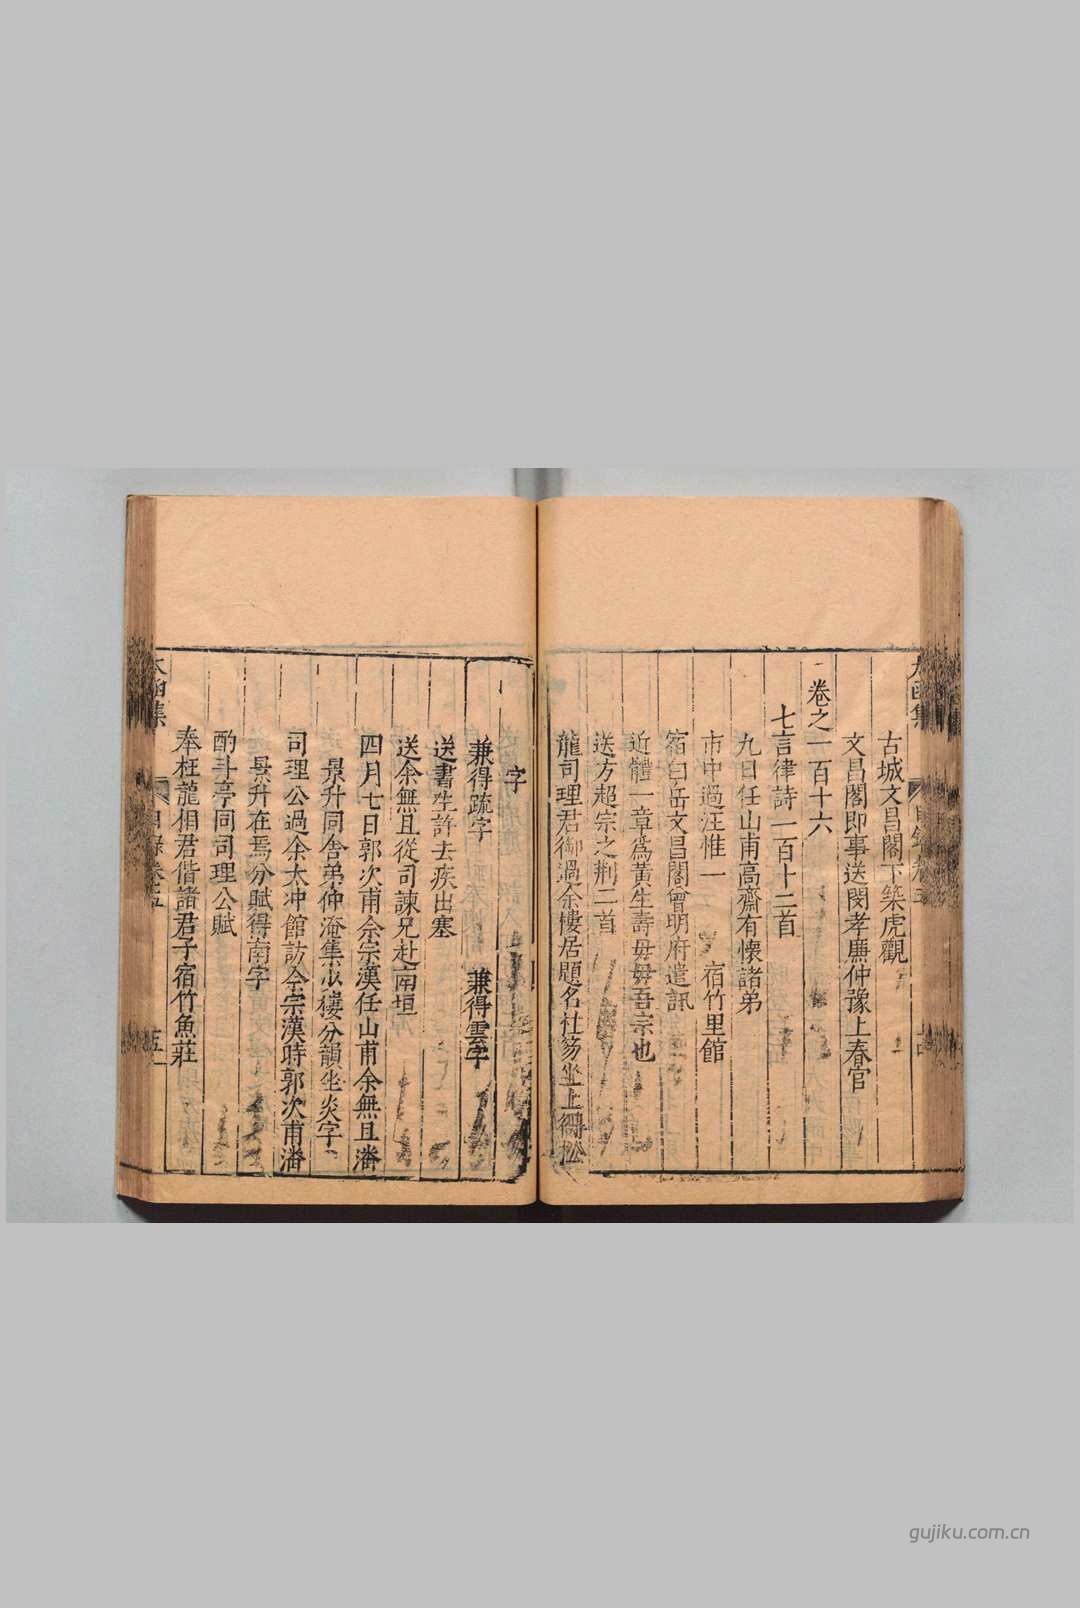 古城文昌閣下築虎觀
文昌閣即事送閔孝廉仲豫上春官
卷之一百十六
七言律詩一百十二首
九日任山甫高齋有懷諸弟
市中過汪惟一 宿竹里館
宿白岳文昌閣曾明府遣訊
近體一章為黃生壽毋毋吾宗也
送方超宗之荆二首
龍司理君御過余樓居題名社芴坐上得松
字
兼得疏字 兼得雲字
送書生許去疾出塞
送余無且從司諫兄赴南垣
四月七日郭次甫佘宗漢任山甫余無且潘
景升同舍弟仲淹集水樓分韻坐炎字
司理公過余太冲館訪佘宗漢時郭次甫潘
景升在焉分賦得南字
酌斗亭同司理公賦
奉枉龍相君偕諸君子宿竹魚莊
太函集
gujiku.com.cn